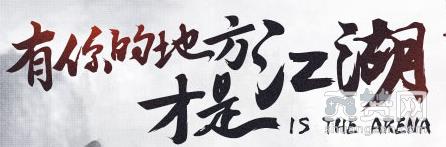 有你的地方
才是江湖
IS THE ARENA